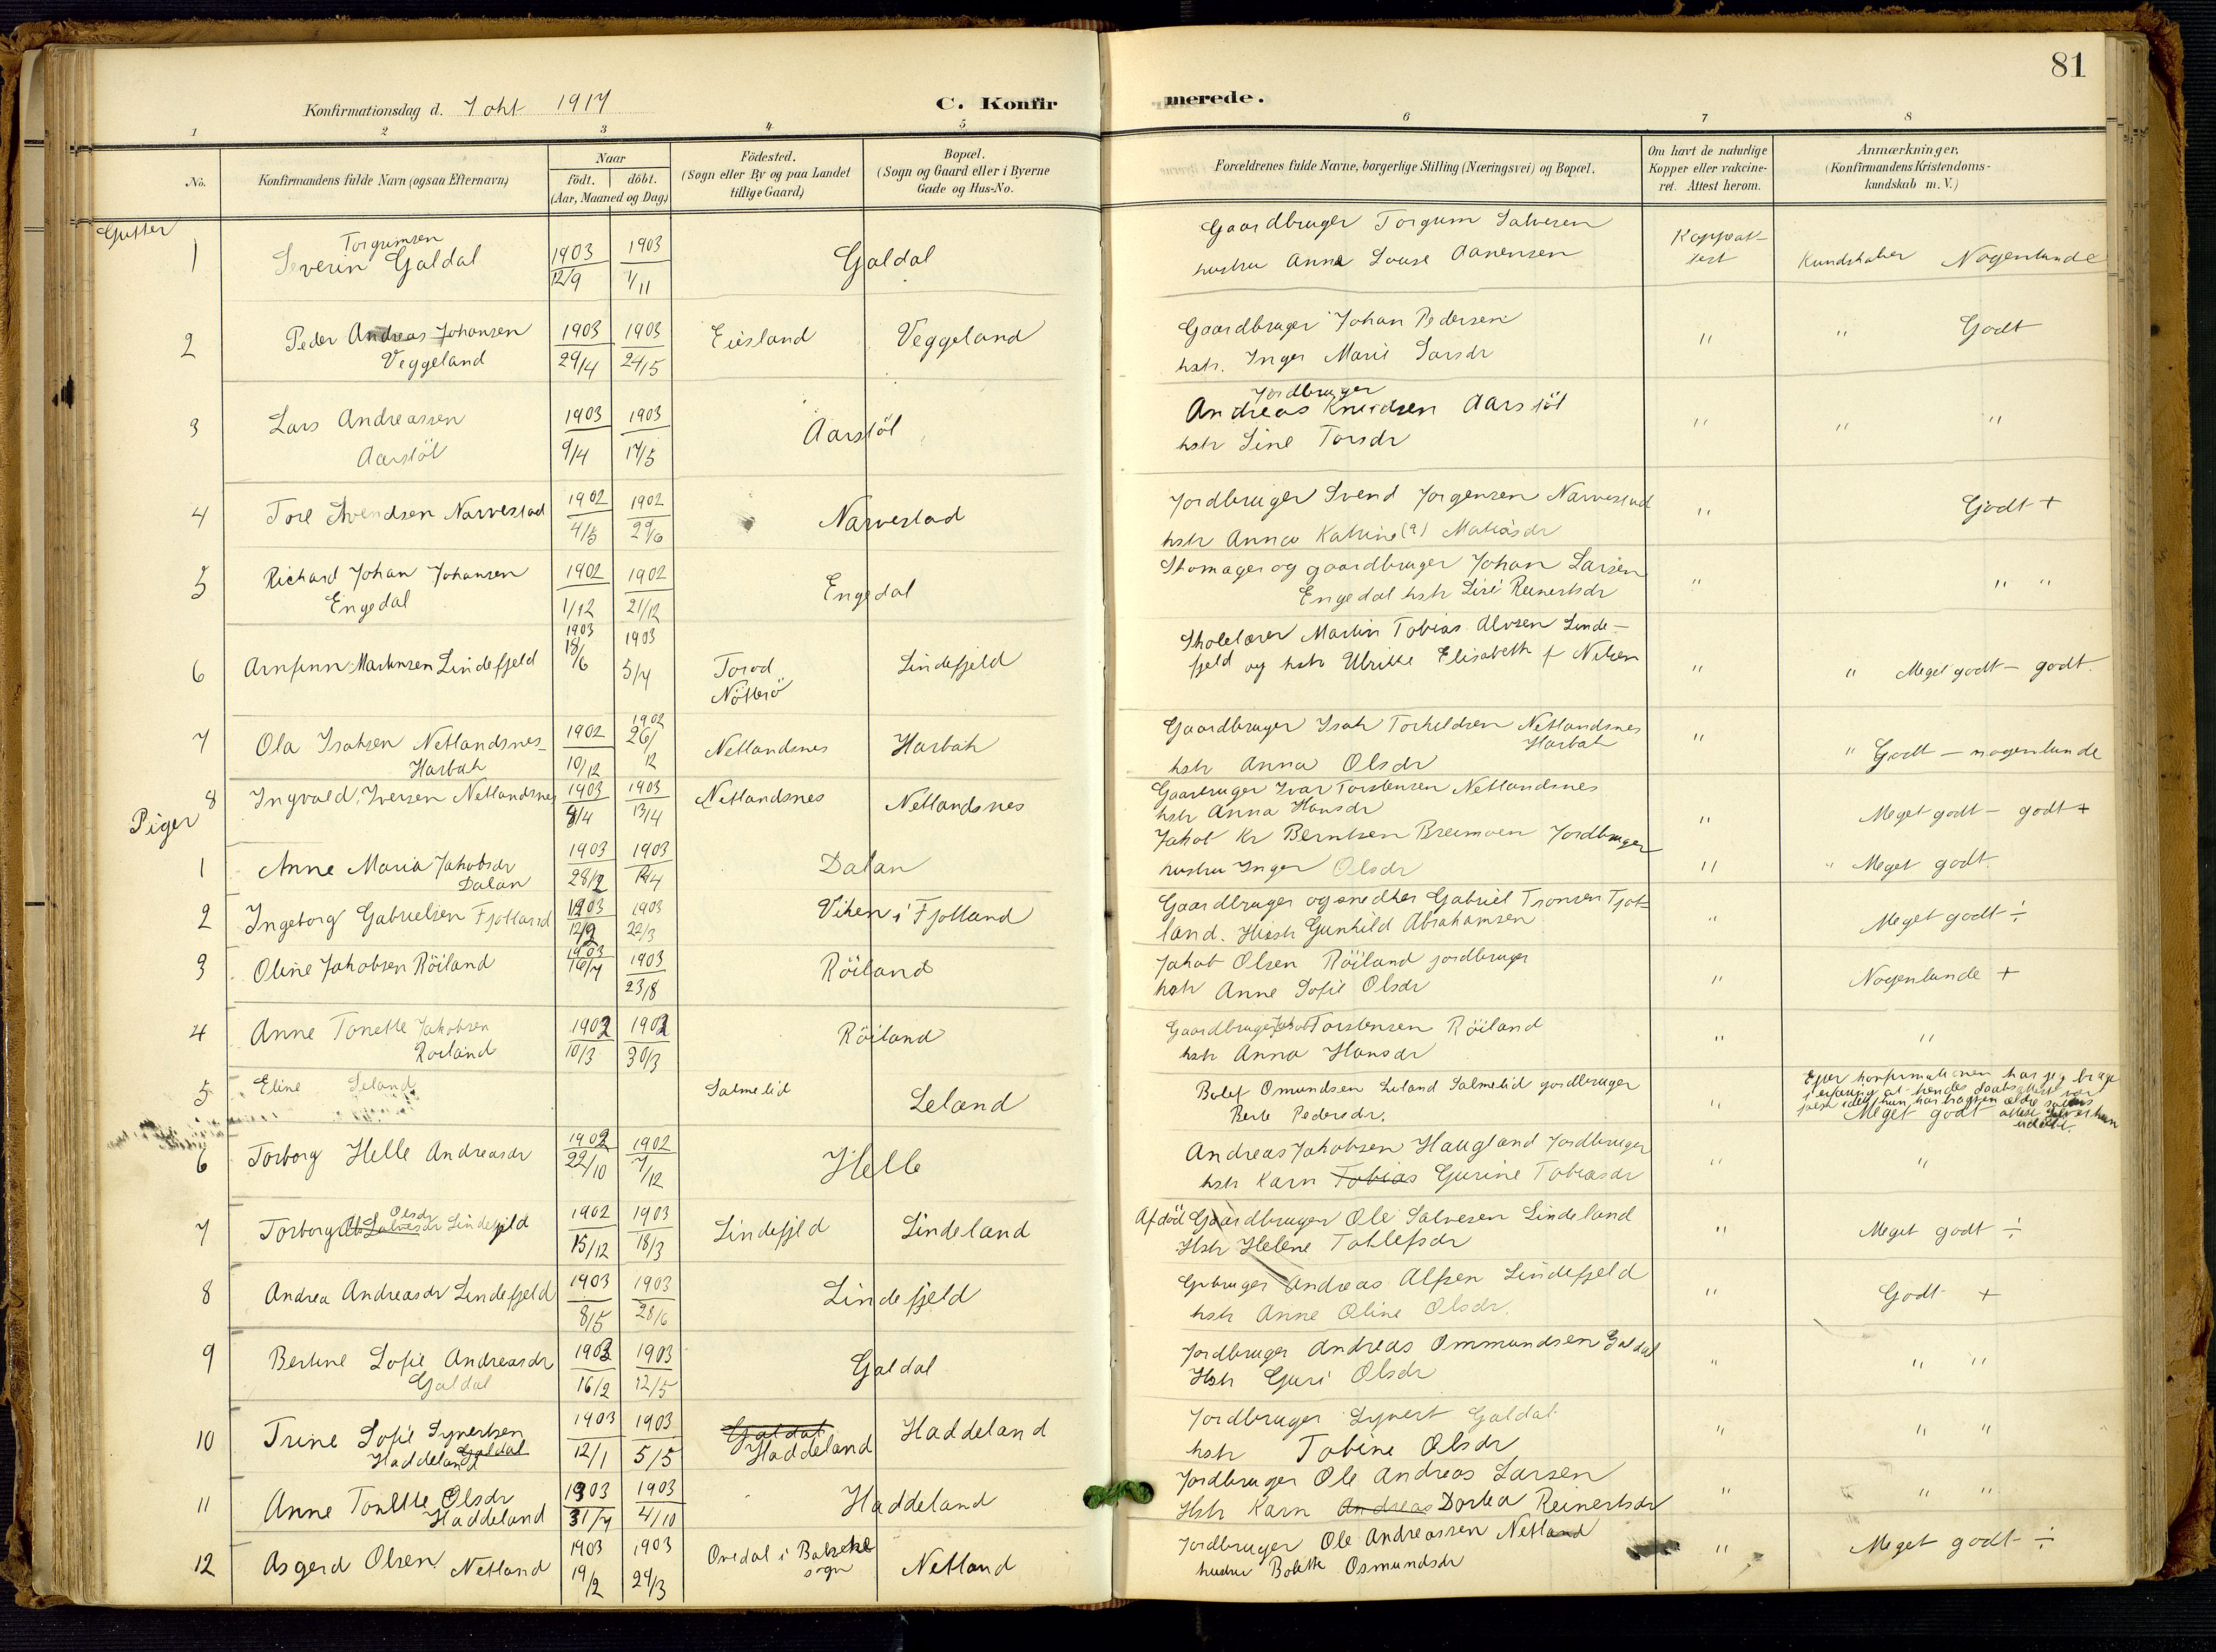 81
Konfirmationsdag d. 7 okt 1917
C. Konfirmerede.
1 2 3 4 5 6 7 8
No.
Konfirmandens fulde Navn (ogsaa Efternavn)
Naar
födt. döbt.
(Aar, Maaned og Dag)
Födested.
(Sogn eller By og paa Landet
tillige Gaard)
Bopæl.
(Sogn og Gaard eller i Byerne
Gade og Hus-No.
Forældrenes fulde Navne, borgerlige Stilling (Næringsvei) og Bopæl.
Om havt de naturlige
Kopper eller vakcine-
ret. Attest herom.
Anmærkninger.
(Konfirmandens Kristendoms-
kundskab m. V.)
Gutter
1 Severin Torgrimsen Galdal 1903 12/9 1903 1/11 Galdal
Gaardbruger Torgrim Salvesen
hustru Anna Louise Aanensen
Koppeat-
test
Kundskaber Nogenlunde
2 Peder Andreas Johansen
Veggeland 1903 29/4 1903 24/5 Eiesland Veggeland
Gaardbruger Johan Pedersen
hstr. Inger Marie Larsdr
" " Godt
3 Lars Andreassen
Aarstöl 1903 9/4 1903 17/5 Aarstöl
Jordbruger
Andreas Knudsen Aarstöl
hstr Sine Torsdr
" " "
4 Tore Svendsen Narvestad 1902 4/5 1902 29/6 Narvestad
Jordbruger Svend Jorgensen Narvestad
hstr Anna Katrine (?) Matiasdr
" Godt +
5 Richard Johan Johansen
Engedal 1902 1/12 1902 21/12 Engedal
Skomager og gaardbruger Johan Larsen
Engedal hstr Lise Reinertsdr
" " "
6 Arnfinn Martinsen Lindefjeld 1903 18/6 1903 5/7 Torød
Nötterö Lindefjeld
Skolelærer Martin Tobias Alvsen Linde-
fjeld og hstr Ulrikke Elisabeth f Nilsen
" " Meget godt - godt.
7 Ola Isaksen Netlandsnes-
Harbak 1902 10/12 1902 26/12 Netlandsnes Harbak
Gaardbruger Isak Torkildsen Netlandsnes
Harbak
hstr Anna Olsdr
" " Godt - nogenlunde
8 Ingvald Iversen Netlandsnes 1903 8/4 1903 13/4 Netlandsnes Netlandsnes
Gaardbruger Ivar Torstensen Netlandsnes
hstr Anna Hansdr
" Meget godt - godt +
Piger
1 Anne Maria Jakobsdr
Dalan 1903 28/2 1903 Dalan
Jakob Kr Berntsen Breimoen Jordbruger
hustru Inger Olsdr
" " Meget godt
2 Ingeborg Gabrielsen Fjotland 1903 12/2 1903 22/3 Viken i Fjotland
Gaardbruger og snedker Gabriel Tronsen Fjot-
land. Hustr Gunhild Abrahamsen
" Meget godt ÷
3 Oline Jakobsen Röiland 1903 16/7 1903 23/8 Röiland
Jakob Olsen Röiland jordbruger
hstr Anne Sofie Olsdr
" Nogenlunde +
4 Anne Tonette Jakobsen
Roiland 1902 10/3 1902 30/3 Röiland
Gaardbruger Jakob Torstensen Röiland
hstr Anna Hansdr
" "
5 Eline Leland Salmelid Leland
Bolef Omundsen Leland Salmelid jordbruger
Berte Pedersdr.
" Efter konfirmationen har jeg bragt
i erfaring at hendes daabsattest var
Meget godt
6 Torborg Helle Andreasdr 1902 22/10 1902 7/12 Helle
Andreas Jakobsen Haugland Jordbruger
hstr Karn Tobias Gurine Tobiasdr
" "
7 Torborg Ole Salvesdr Olsdr Lindefjeld 1902 15/12 1903 18/3 Lindefjeld Lindeland
Afdöd Gaardbruger Ole Salvesen Lindeland
Hstr Helene Tollefsdr
" Meget godt ÷
8 Andrea Andreasdr Lindefjeld 1903 8/5 1903 28/6 Lindefjeld
Gbruger Andreas Alfsen Lindefjeld
hstr Anne Oline Olsdr.
" Godt +
9 Bertine Sofie Andreasdr
Galdal 1903 16/2 1903 12/5 Galdal
Jordbruger Andreas Ommundsen Galdal
Hstr Guri Olsdr
" " "
10 Trine Sofie Syvertsen
Haddeland Galdal 1903 12/1 1903 5/5 Galdal
Haddeland Haddeland
Jordbruger Syvert Galdal
hstr Tobine Olsdr
" " "
11 Anne Tonette Olsdr
Haddeland 1903 31/7 1903 4/10 Haddeland
Jordbruger Ole Andreas Larsen
Hstr Karn Andreas Dortea Reinertsdr
" " "
12 Asgerd Olsen Netland 1903 19/2 1903 29/3 Oredal i Bakke
sogn Netland
Jordbruger Ole Andreassen Netland
hustru Bolette Osmundsdr
" Meget godt ÷